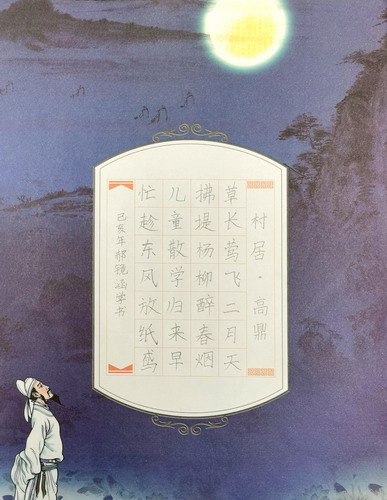 村居·高鼎
草长莺飞二月天
拂堤杨柳醉春烟
儿童散学归来早
忙趁东风放纸鸢
己亥年 镜涵学书